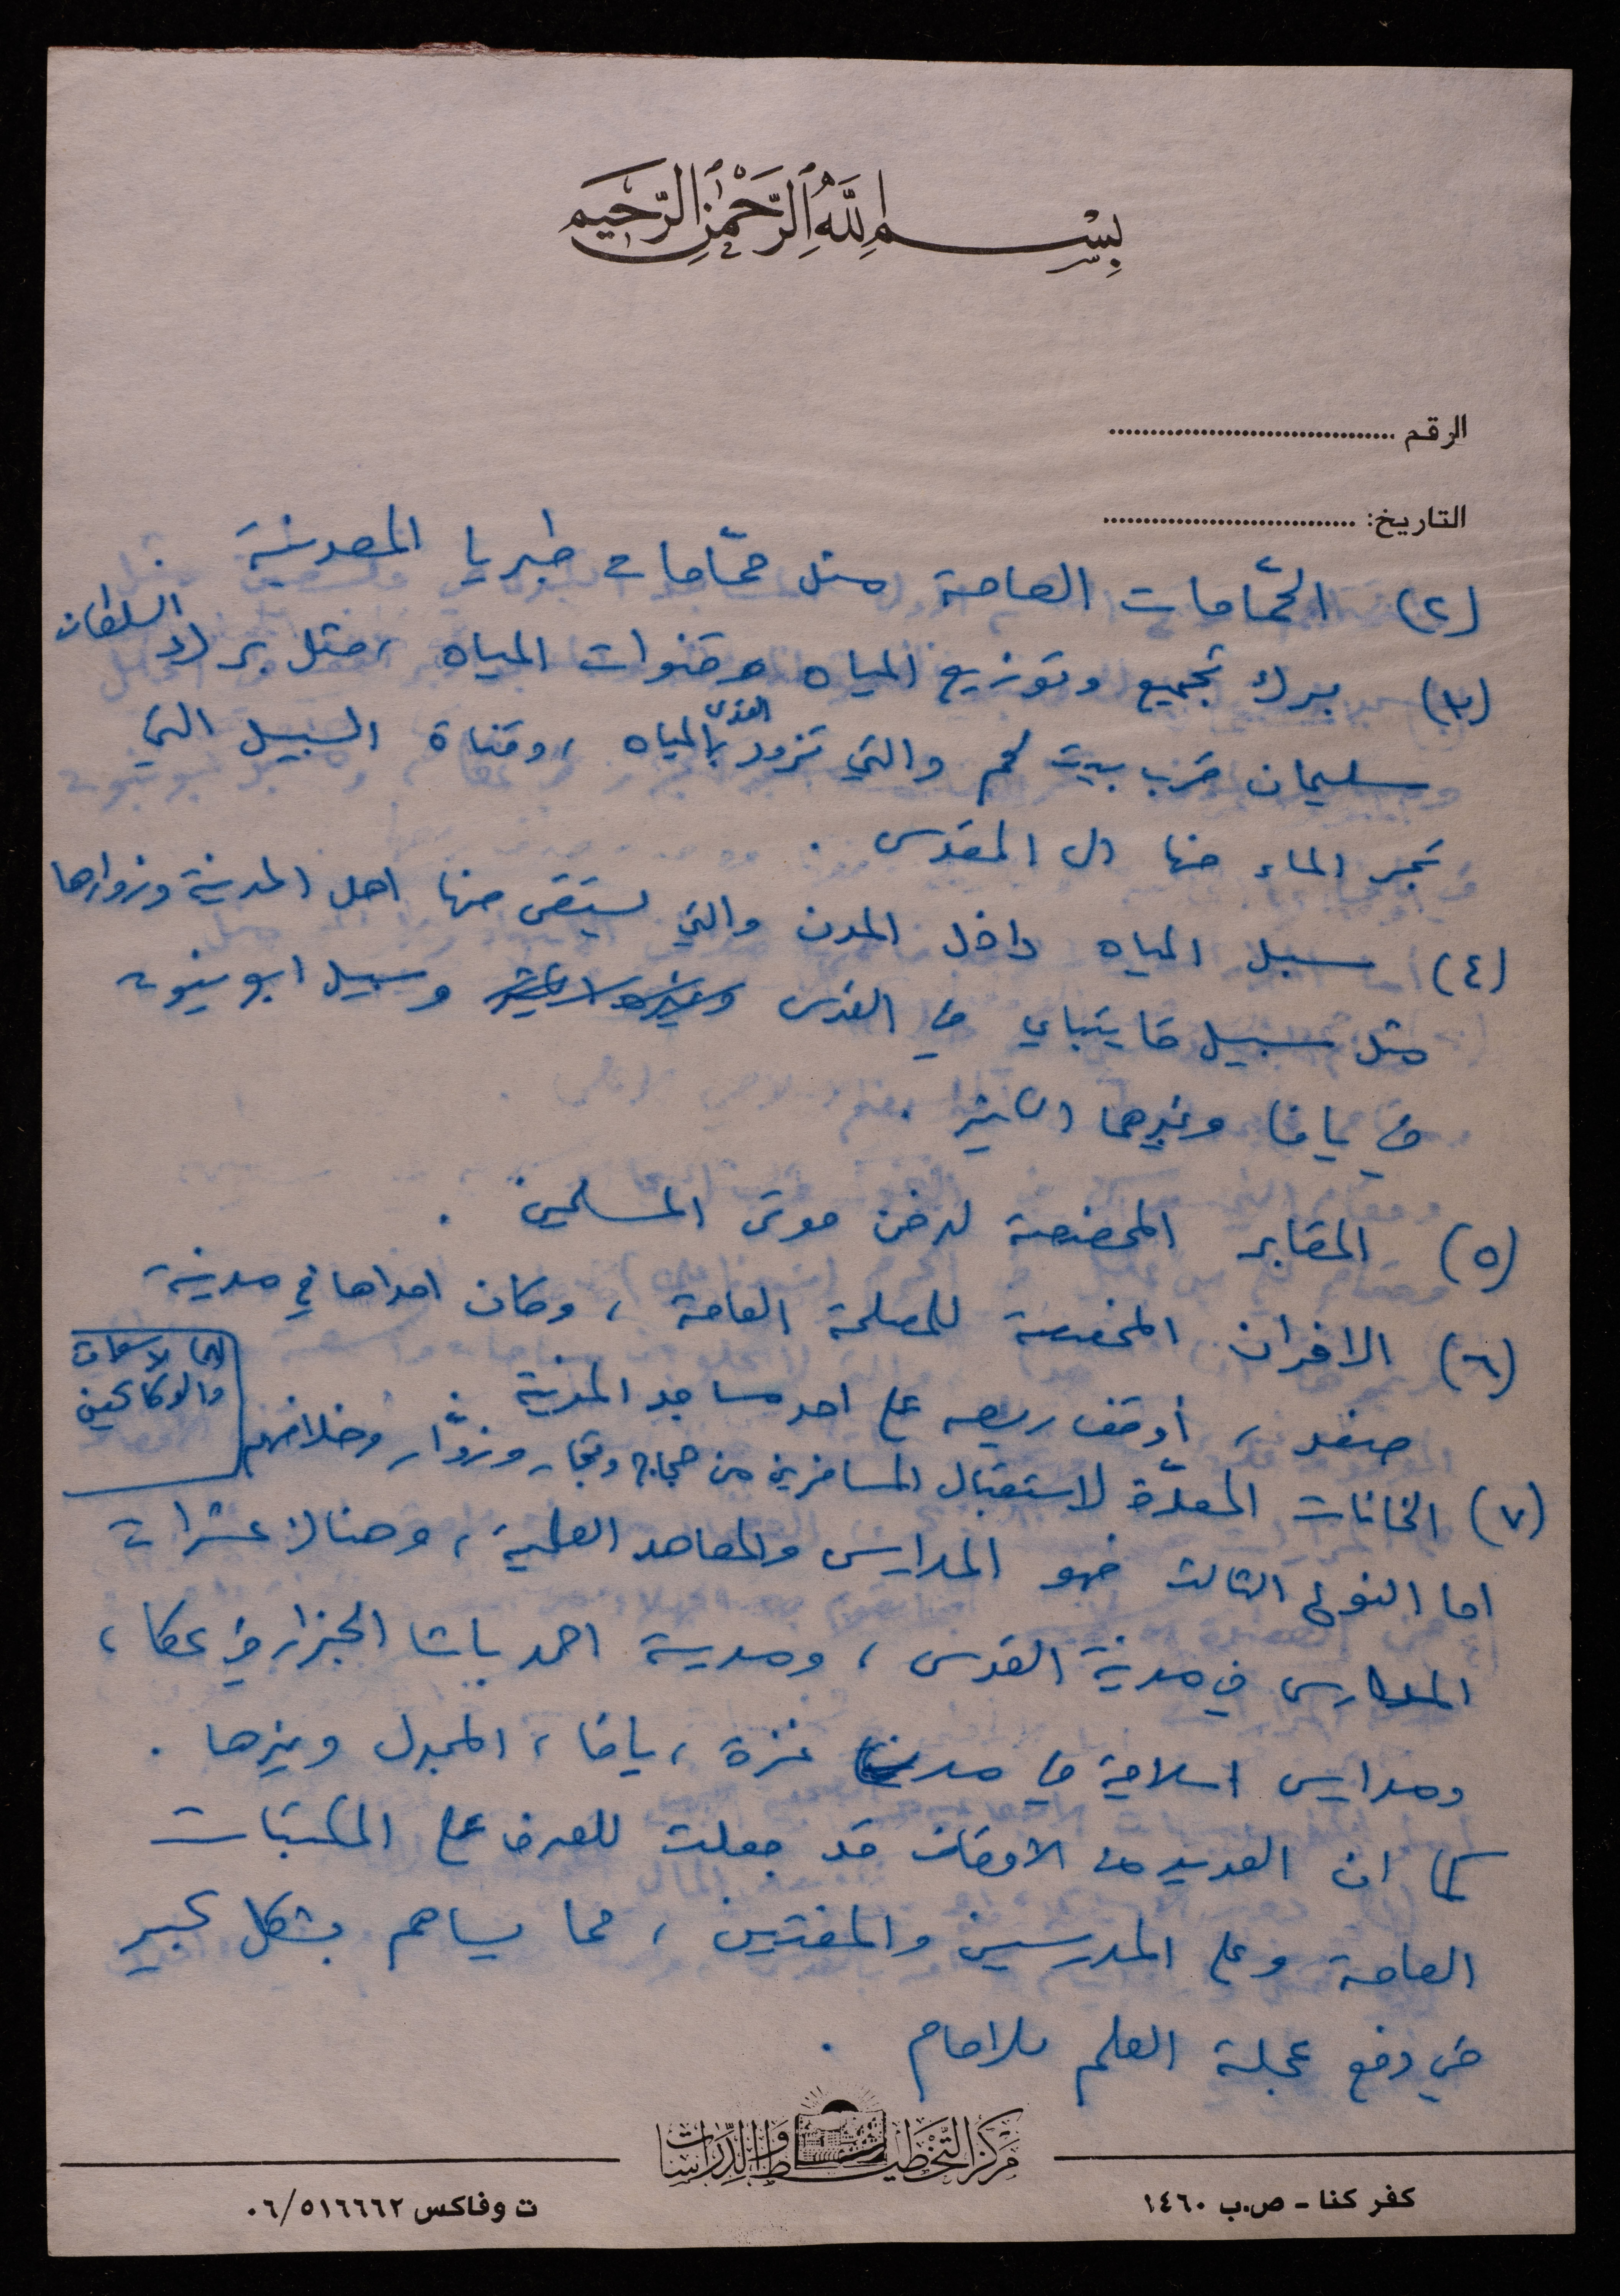 بسم الله الرحمن الرحيم
الرقم ....................................
التاريخ: ................................
(٢) الحمّامات العامة مثل حمّامات طبريا المعدنية .
(٣) برك تجميع وتوزيع المياه وقنوات المياه ، مثل برك السلطان
سليمان قرب بيت لحم والتي تزود القدس بالمياه ، وقناة السبيل التي
تجر الماء منها الى المقدس .
(٤) سبل المياه داخل المدن والتي يستقي منها اهل المدينة وزوارها
مثل سبيل قايتباي في القدس وسبيل ابو نبوت
في يافا وغيرهما الكثير .
(٥) المقابر المخصصة لدفن موتى المسلمين .
(٦) الافران المخصصة للمصلحة العامة ، وكان احداها في مدينة
صفد ، أوقف ريعه على احد مساجد المدينة .
(٧) الخانات المعدّة لاستقبال المسافرين من حجاج وتجار وزوّار وخلافهم
الاسواق
والدكاكين
اما النوع الثالث فهو المدارس والمعاهد العلمية ، وهناك عشرات
المدارس في مدينة القدس ، ومدرسة احمد باشا الجزار في عكا ،
ومدارس اسلامية في مدن غزة ، يافا ، المجدل وغيرها .
كما ان العديد من الاوقاف قد جعلت للصرف على المكتبات
العامة وعلى المدرسين والمفتين ، مما يساهم بشكل كبير
في دفع عجلة العلم للامام .
مركز التخطيط والدراسات
كفر كنا - ص.ب ١٤٦٠
ت وفاكس ٠٦/٥١٦٦٦٢